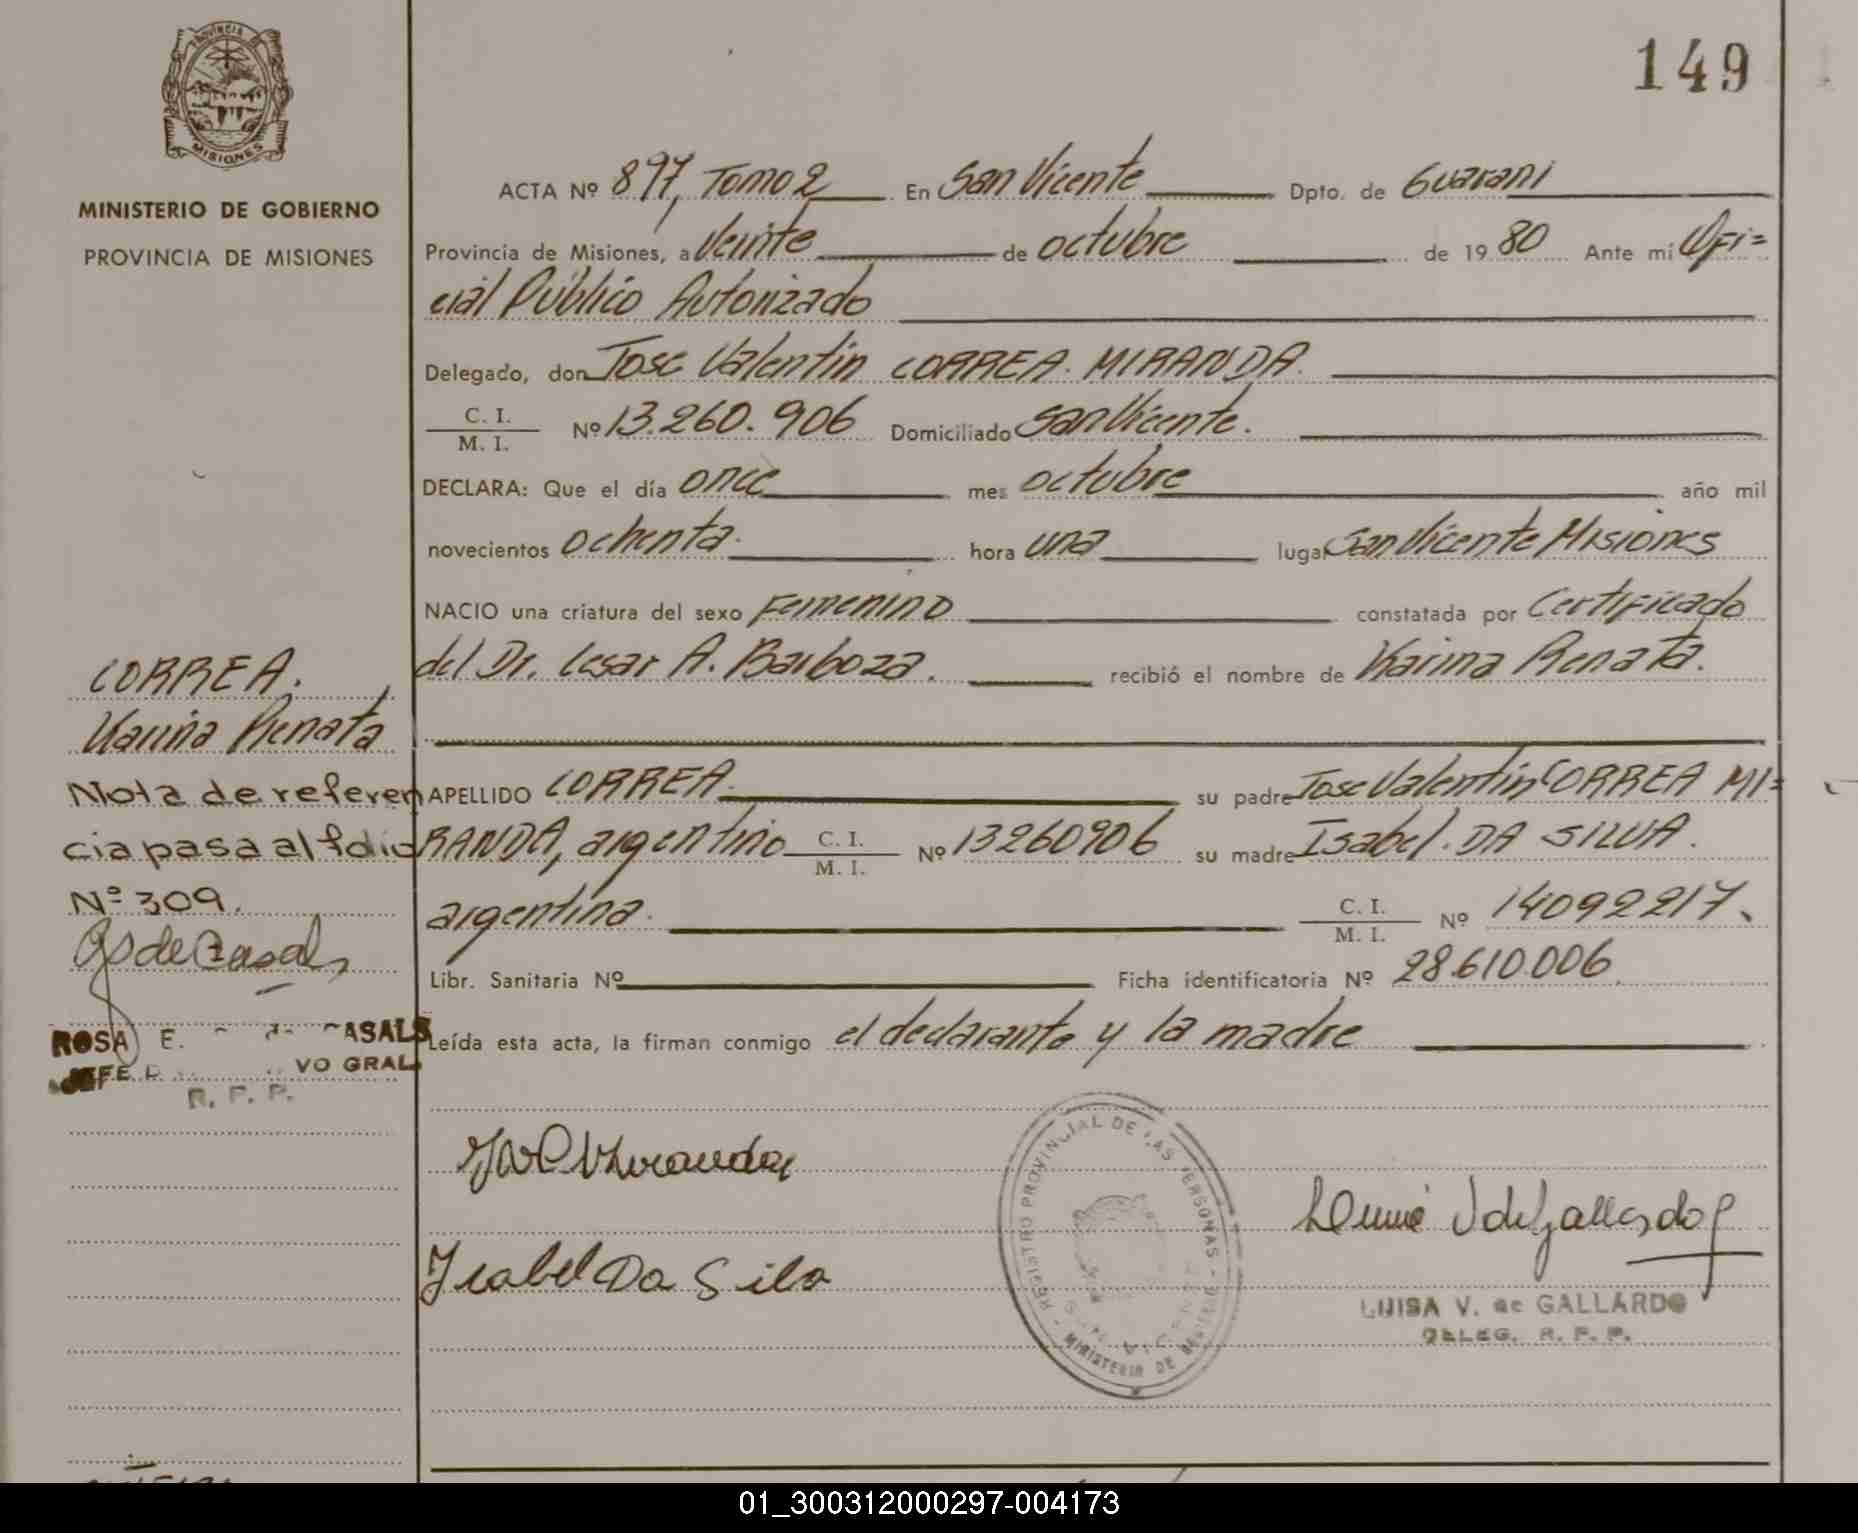 149
PROVINCIA DE
MISIONES
MINISTERIO DE GOBIERNO
PROVINCIA DE MISIONES
ACTA Nº 897, Tomo 2 En San Vicente Dpto. de Guarani
Provincia de Misiones, a Veinte de octubre de 19 80 Ante mí Ofi=
cial Público Autorizado
Delegado, don Jose Valentin CORREA. MIRANDA.
C. I.
M. I.
Nº 13.260.906 Domiciliado San Vicente.
DECLARA: Que el día once mes octubre año mil
novecientos ochenta. hora una lugar San Vicente Misiones
NACIO una criatura del sexo Femenino constatada por Certificado
del Dr. Cesar A. Barboza. recibió el nombre de Karina Renata.
CORREA.
Karina Renata
APELLIDO CORREA. su padre Jose Valentin CORREA MI=
RANDA, argentino C. I. M. I. Nº 13260906 su madre Isabel. DA SILVA.
argentina. C. I. M. I. Nº 14092217.
Libr. Sanitaria Nº Ficha identificatoria Nº 28.610.006
Leída esta acta, la firman conmigo el declarante y la madre
Nota de referen
cia pasa al folio
Nº 309.
ROSA E. de CASALS
JEFE VO GRAL
R. P. P.
Isabel Da Silva
REGISTRO PROVINCIAL DE LAS PERSONAS
MINISTERIO DE
LUISA V. de GALLARDO
DELEG. R. P. P.
01_300312000297-004173